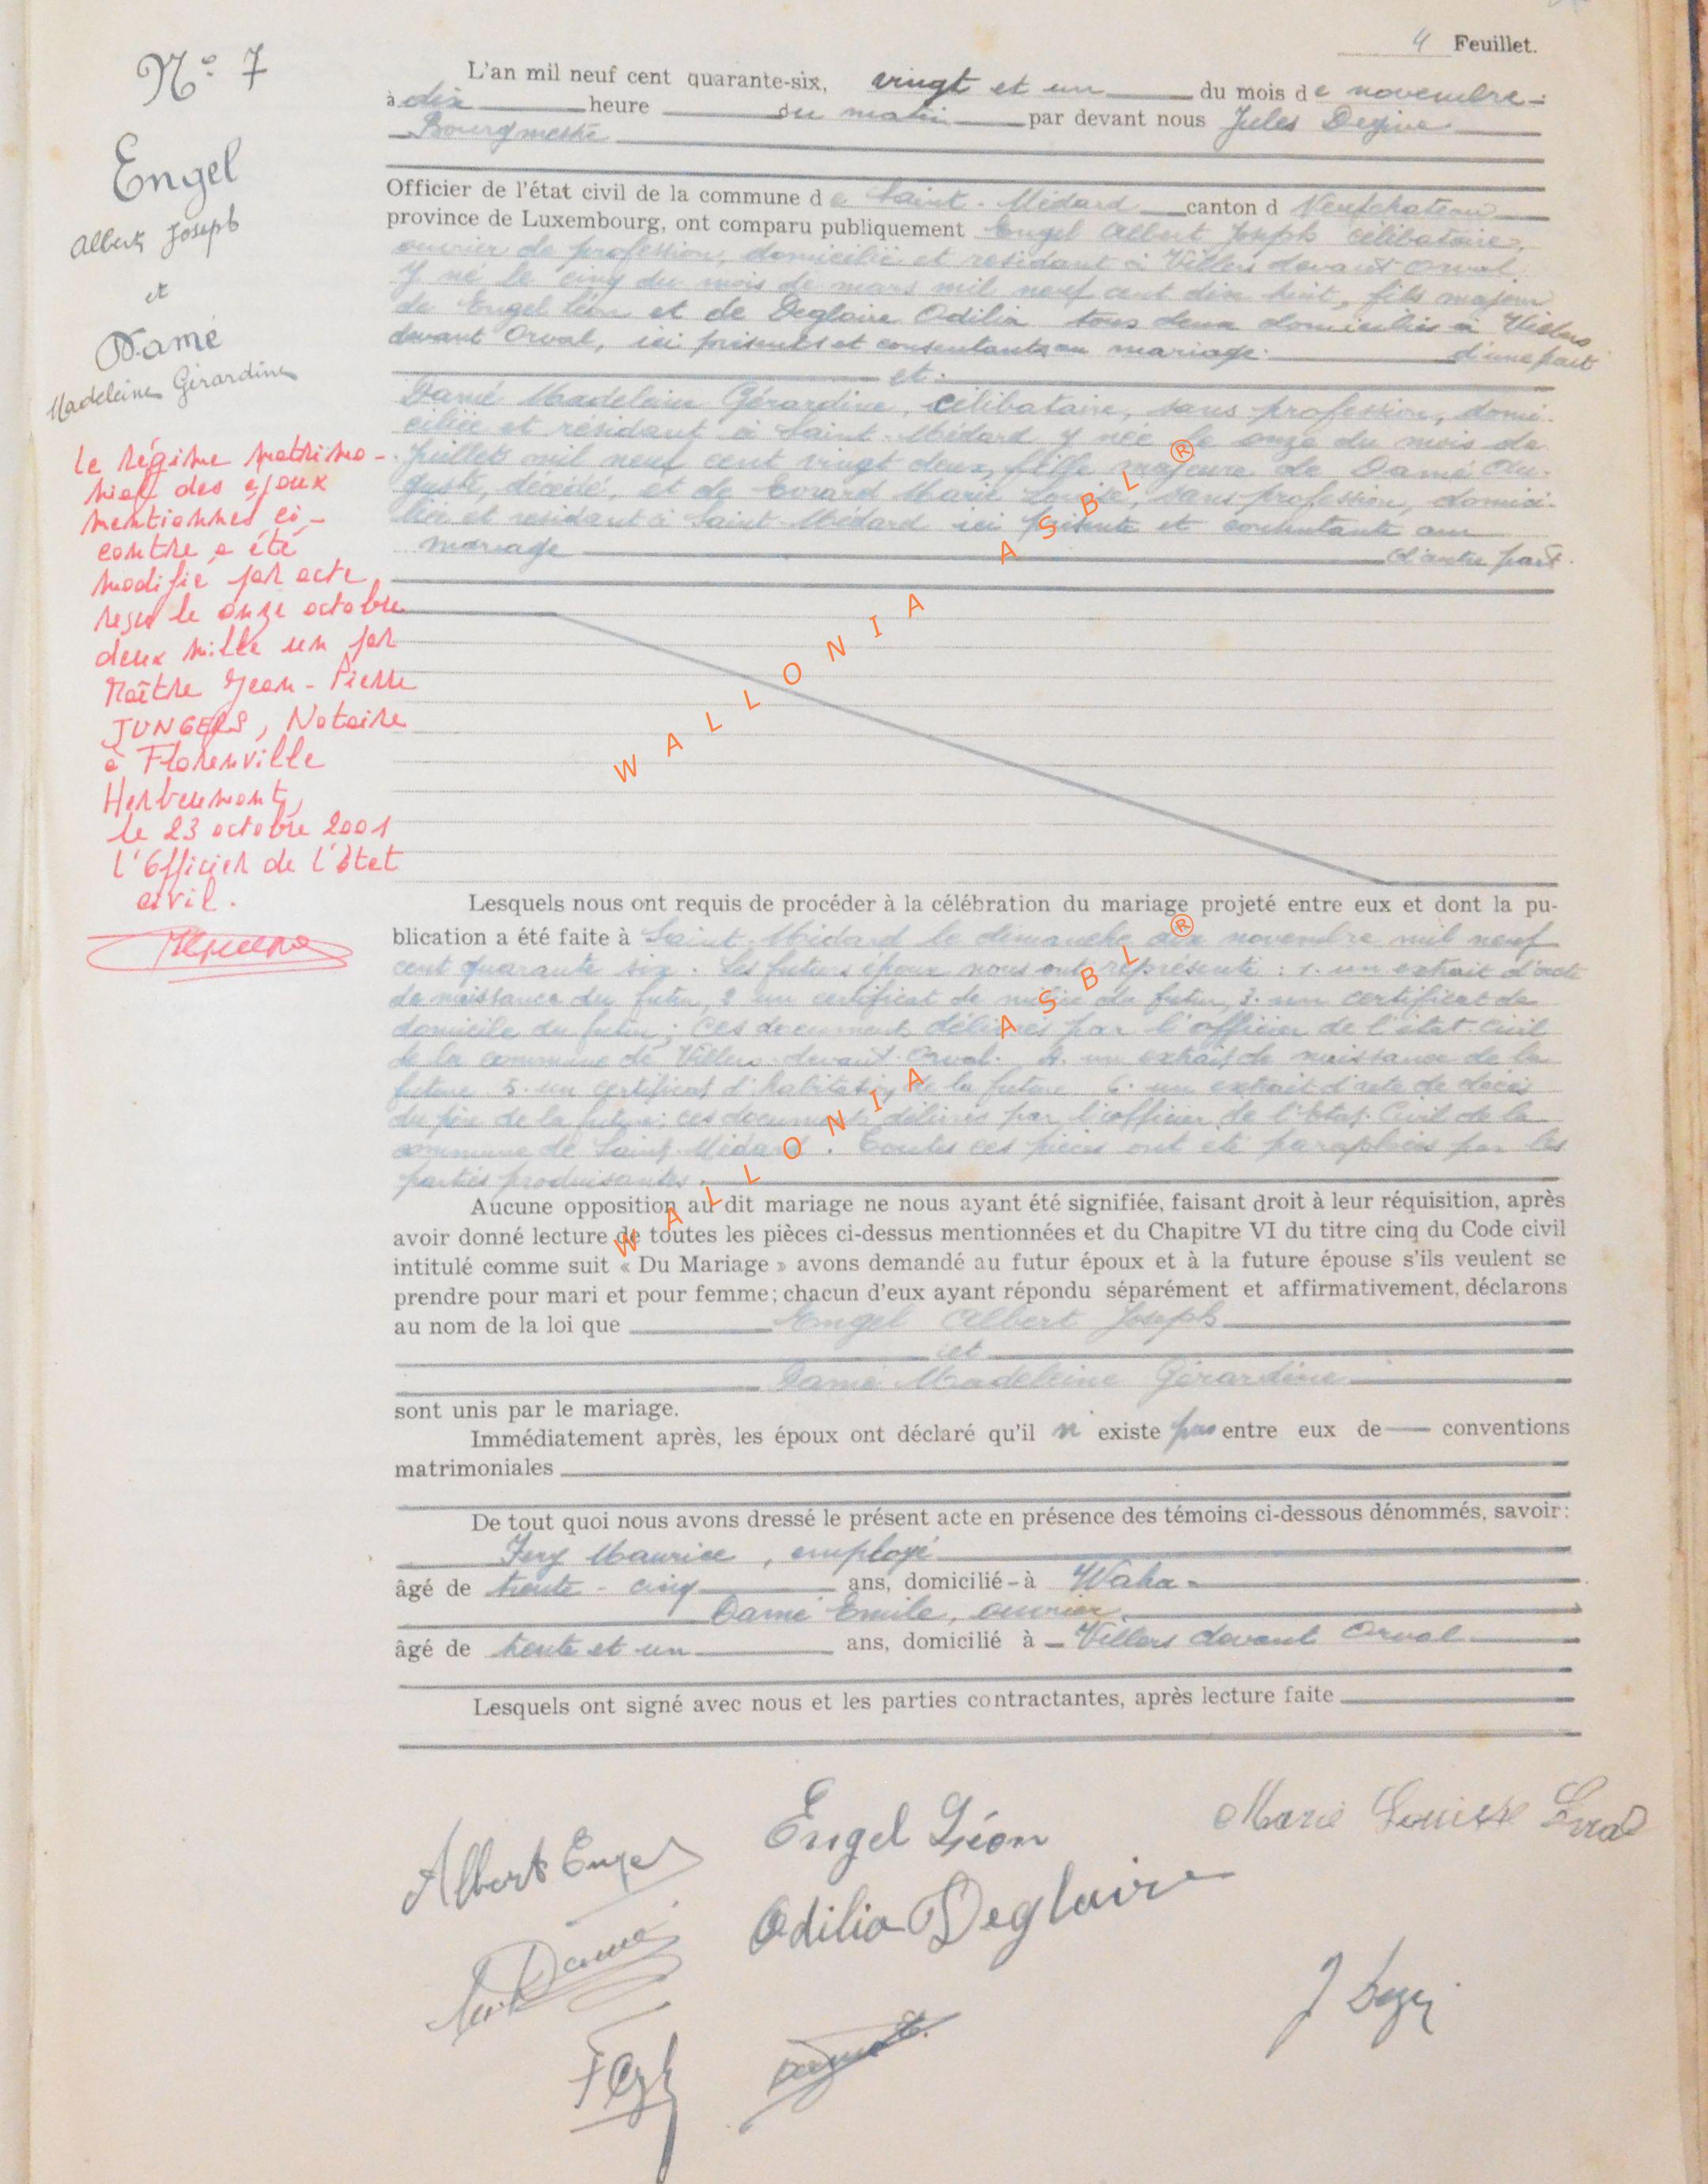 4 Feuillet.
N° 7
Engel
Albert Joseph
et
Damé
Madeleine Gérardine
Le régime matrimo-
niel des époux
mentionnés ci-
contre a été
modifié par acte
reçu le onze octobre
deux mille un par
Maître Jean-Pierre
JUNGERS, Notaire
à Florenville
Herbeumont,
le 23 octobre 2001
L'Officier de l'état
civil.
L'an mil neuf cent quarante-six, vingt et un du mois de novembre
à dix heure du matin par devant nous Jules
Bourgmestre
Officier de l'état civil de la commune de Saint-Médard canton d Neufchateau
province de Luxembourg, ont comparu publiquement Engel Albert Joseph célibataire,
ouvrier de profession, domicilié et résidant à Villers devant Orval
y né le cinq du mois de mars mil neuf cent dix huit, fils majeur
de Engel Léon et de Deglaire Odilia tous deux domiciliés à Villers
devant Orval, ici présents et consentants au mariage. d'une part
et
Damé Madeleine Gérardine, célibataire, sans profession, domi-
ciliée et résidant à Saint-Médard y née le onze du mois de
Juillet mil neuf cent vingt deux, fille majeure de Damé Au-
guste, décédé, et de Evrard Marie Louise, sans profession, domici-
liée et résidant à Saint-Médard ici présente et consentante au
mariage d'autre part.
Lesquels nous ont requis de procéder à la célébration du mariage projeté entre eux et dont la pu-
blication a été faite à Saint-Médard le dimanche dix novembre mil neuf
cent quarante six. Les futurs époux nous ont représenté : 1. un extrait d'acte
de naissance du futur, 2 un certificat de milice du futur, 3. un certificat de
domicile du futur ; ces document délivrés par l'officier de l'état-civil
de la commune de Villers-devant-Orval. 4. un extrait de naissance de la
future 5. un certificat d'habitation de la future 6. un extrait d'acte de décès
du père de la future ; ces documents délivrés par l'officier de l'Etat Civil de la
commune de Saint-Médard. Toutes ces pièces ont été paraphées par les
parties produisantes.
Aucune opposition au dit mariage ne nous ayant été signifiée, faisant droit à leur réquisition, après
avoir donné lecture de toutes les pièces ci-dessus mentionnées et du Chapitre VI du titre cinq du Code civil
intitulé comme suit « Du Mariage » avons demandé au futur époux et à la future épouse s'ils veulent se
prendre pour mari et pour femme; chacun d'eux ayant répondu séparément et affirmativement, déclarons
au nom de la loi que Engel Albert Joseph
et
Damé Madeleine Gérardine
sont unis par le mariage.
Immédiatement après, les époux ont déclaré qu'il n' existe pas entre eux de conventions
matrimoniales
De tout quoi nous avons dressé le présent acte en présence des témoins ci-dessous dénommés, savoir:
Maurice, employé
âgé de trente-cinq ans, domicilié-à Waha
Damé Emile, ouvrier
âgé de trente et un ans, domicilié à Villers devant Orval
Lesquels ont signé avec nous et les parties contractantes, après lecture faite
Albert Engel Engel Léon Marie Louise
Damé Odilia Deglaire
WALLONIA ASBL ®
WALLONIA ASBL ®